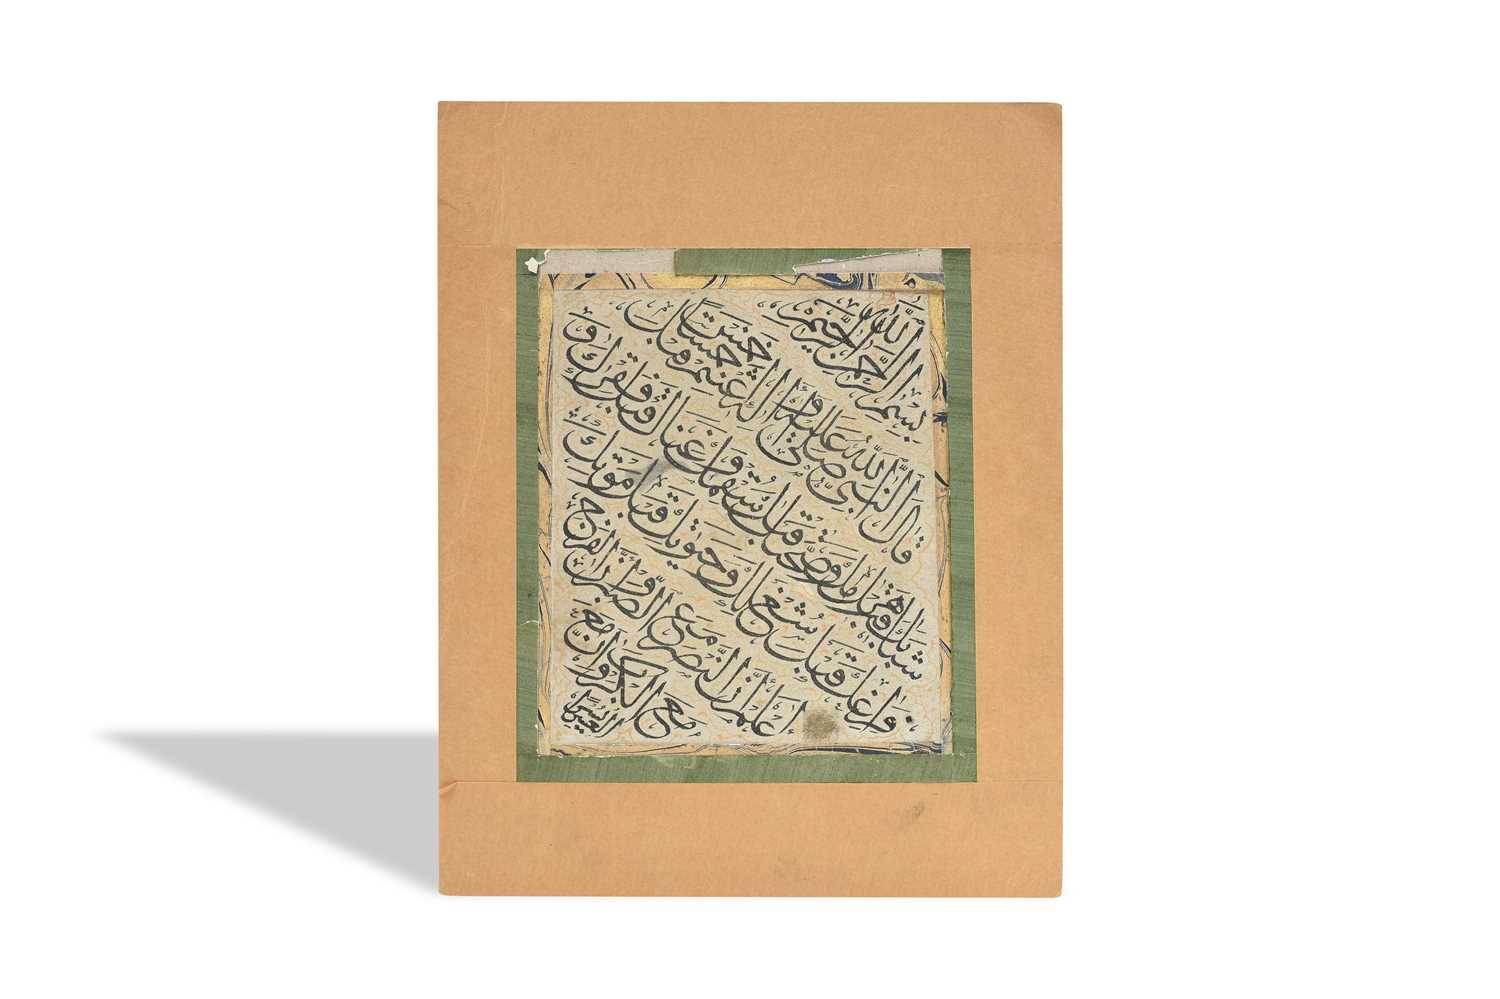 بسم الله الرحمن الرحيم
قال النبي صلى الله عليه وآله اغتنم خمسا قبل خمس
شبابك قبل هرمك وصحتك قبل سقمك وغناك قبل فقرك و
فراغك قبل شغلك وحيوتك قبل موتك
اعلم ان النصر مع الصبر وان الفرج
مع الكرب وان مع
العسر يسرا